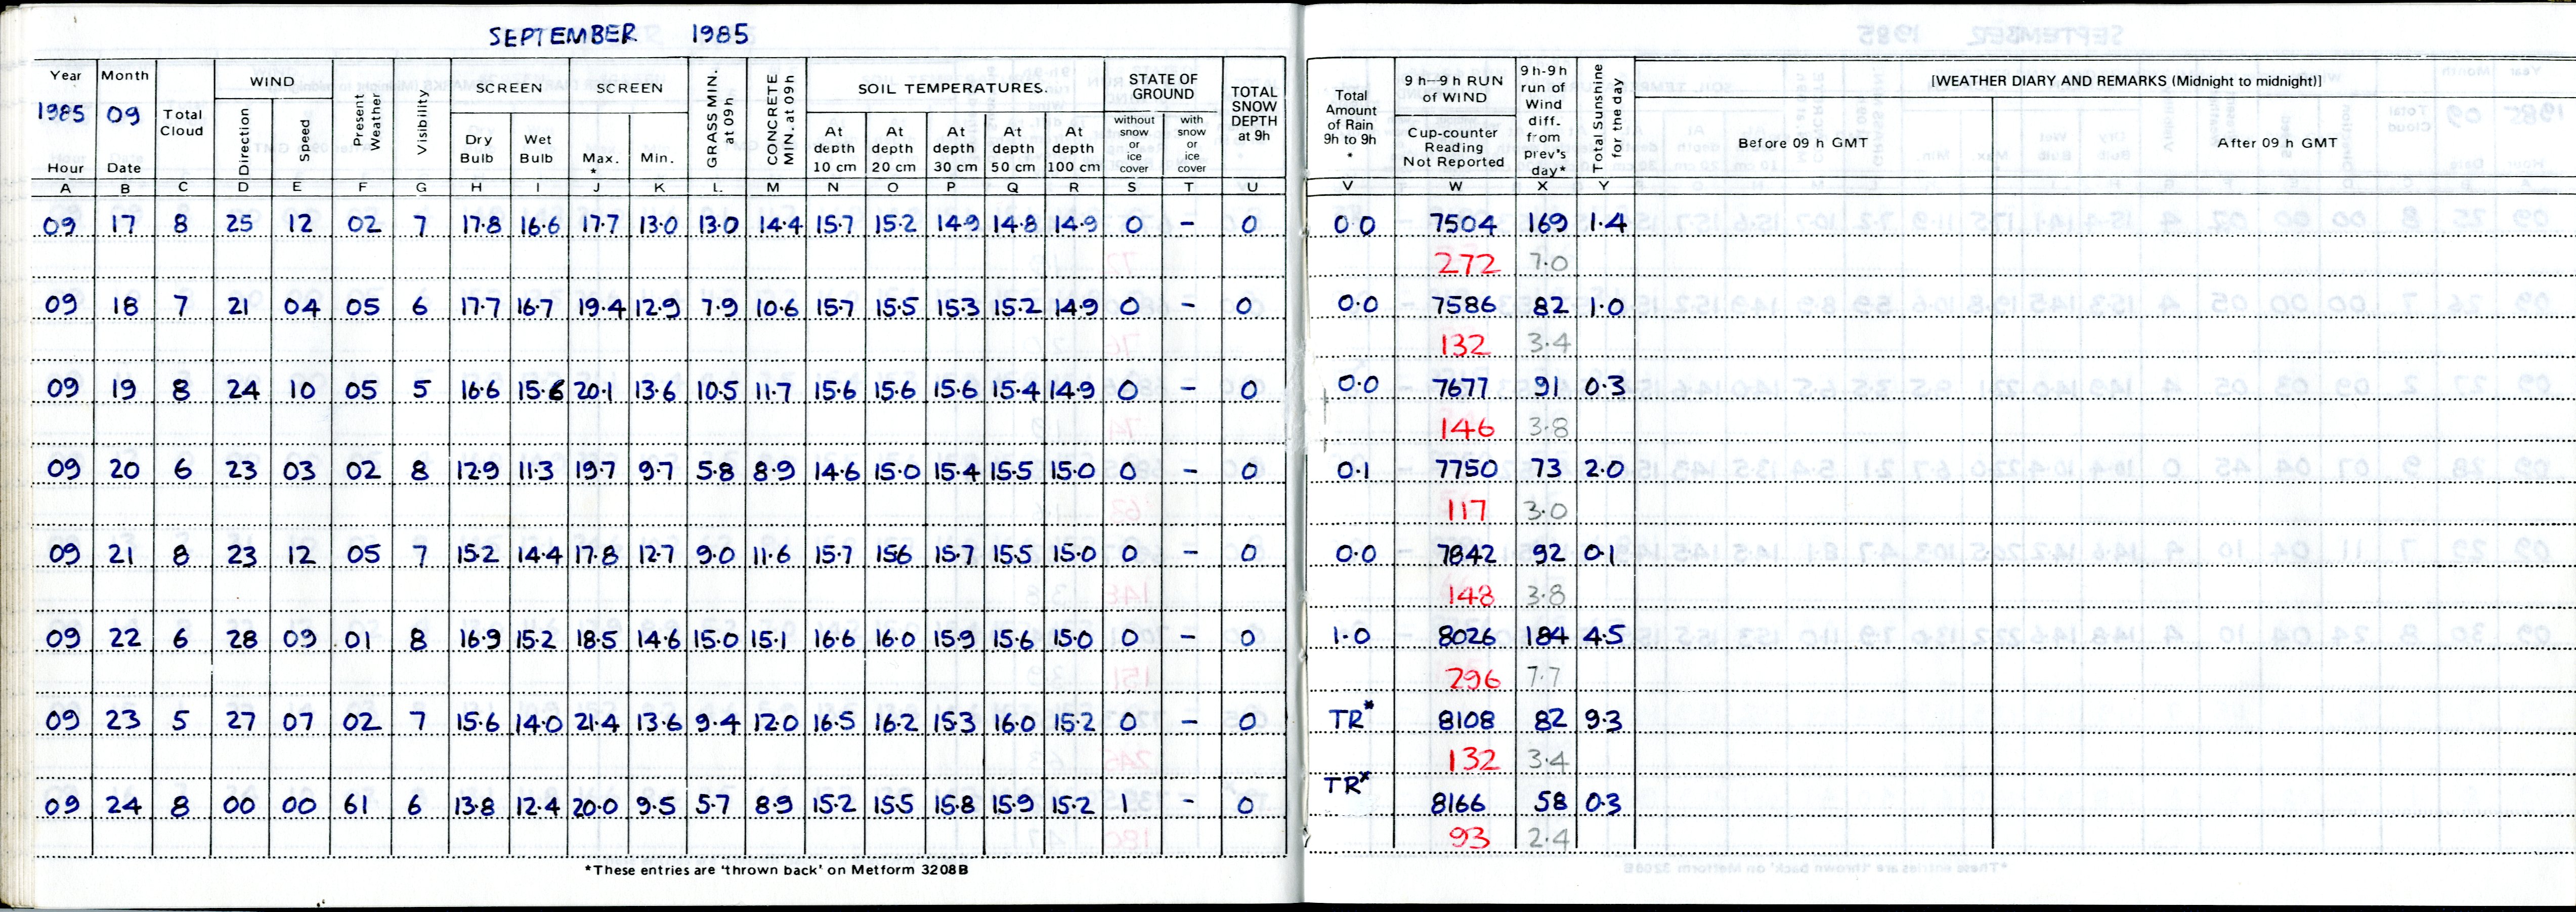 SEPTEMBER 1985
Year Month Total Cloud WIND Present Weather Visibility SCREEN SCREEN GRASS MIN. at 09h CONCRETE MIN. at 09h SOIL TEMPERATURES. STATE OF GROUND TOTAL SNOW DEPTH at 9h Total Amount of Rain 9h to 9h * 9 h-9h RUN of WIND 9h-9h run of Wind diff. from prev's day* Total Sunshine for the day [WEATHER DIARY AND REMARKS (Midnight to midnight)]
1985 09
Hour Date Direction Speed Dry Bulb Wet Bulb Max. * Min. At depth 10 cm At depth 20 cm At depth 30 cm At depth 50 cm At depth 100 cm without snow or ice cover with snow or ice cover Cup-counter Reading Not Reported Before 09 h GMT After 09 h GMT
A B C D E F G H I J K L. M N O P Q R S T U V W X Y
09 17 8 25 12 02 7 17.8 16.6 17.7 13.0 13.0 14.4 15.7 15.2 14.9 14.8 14.9 0 - 0 0.0 7504 169 1.4
272 7.0
09 18 7 21 04 05 6 17.7 16.7 19.4 12.9 7.9 10.6 15.7 15.5 15.3 15.2 14.9 0 - 0 0.0 7586 82 1.0
132 3.4
09 19 8 24 10 05 5 16.6 15.6 20.1 13.6 10.5 11.7 15.6 15.6 15.6 15.4 14.9 0 - 0 0.0 7677 91 0.3
146 3.8
09 20 6 23 03 02 8 12.9 11.3 19.7 9.7 5.8 8.9 14.6 15.0 15.4 15.5 15.0 0 - 0 0.1 7750 73 2.0
117 3.0
09 21 8 23 12 05 7 15.2 14.4 17.8 12.7 9.0 11.6 15.7 156 15.7 15.5 15.0 0 - 0 0.0 7842 92 0.1
148 3.8
09 22 6 28 09 01 8 16.9 15.2 18.5 14.6 15.0 15.1 16.6 16.0 15.9 15.6 15.0 0 - 0 1.0 8026 184 4.5
296 7.7
09 23 5 27 07 02 7 15.6 14.0 21.4 13.6 9.4 12.0 16.5 16.2 15.3 16.0 15.2 0 - 0 TR* 8108 82 9.3
132 3.4
09 24 8 00 00 61 6 13.8 12.4 20.0 9.5 5.7 8.9 15.2 15.5 15.8 15.9 15.2 1 - 0 TR* 8166 58 0.3
93 2.4
*These entries are 'thrown back' on Metform 3208B